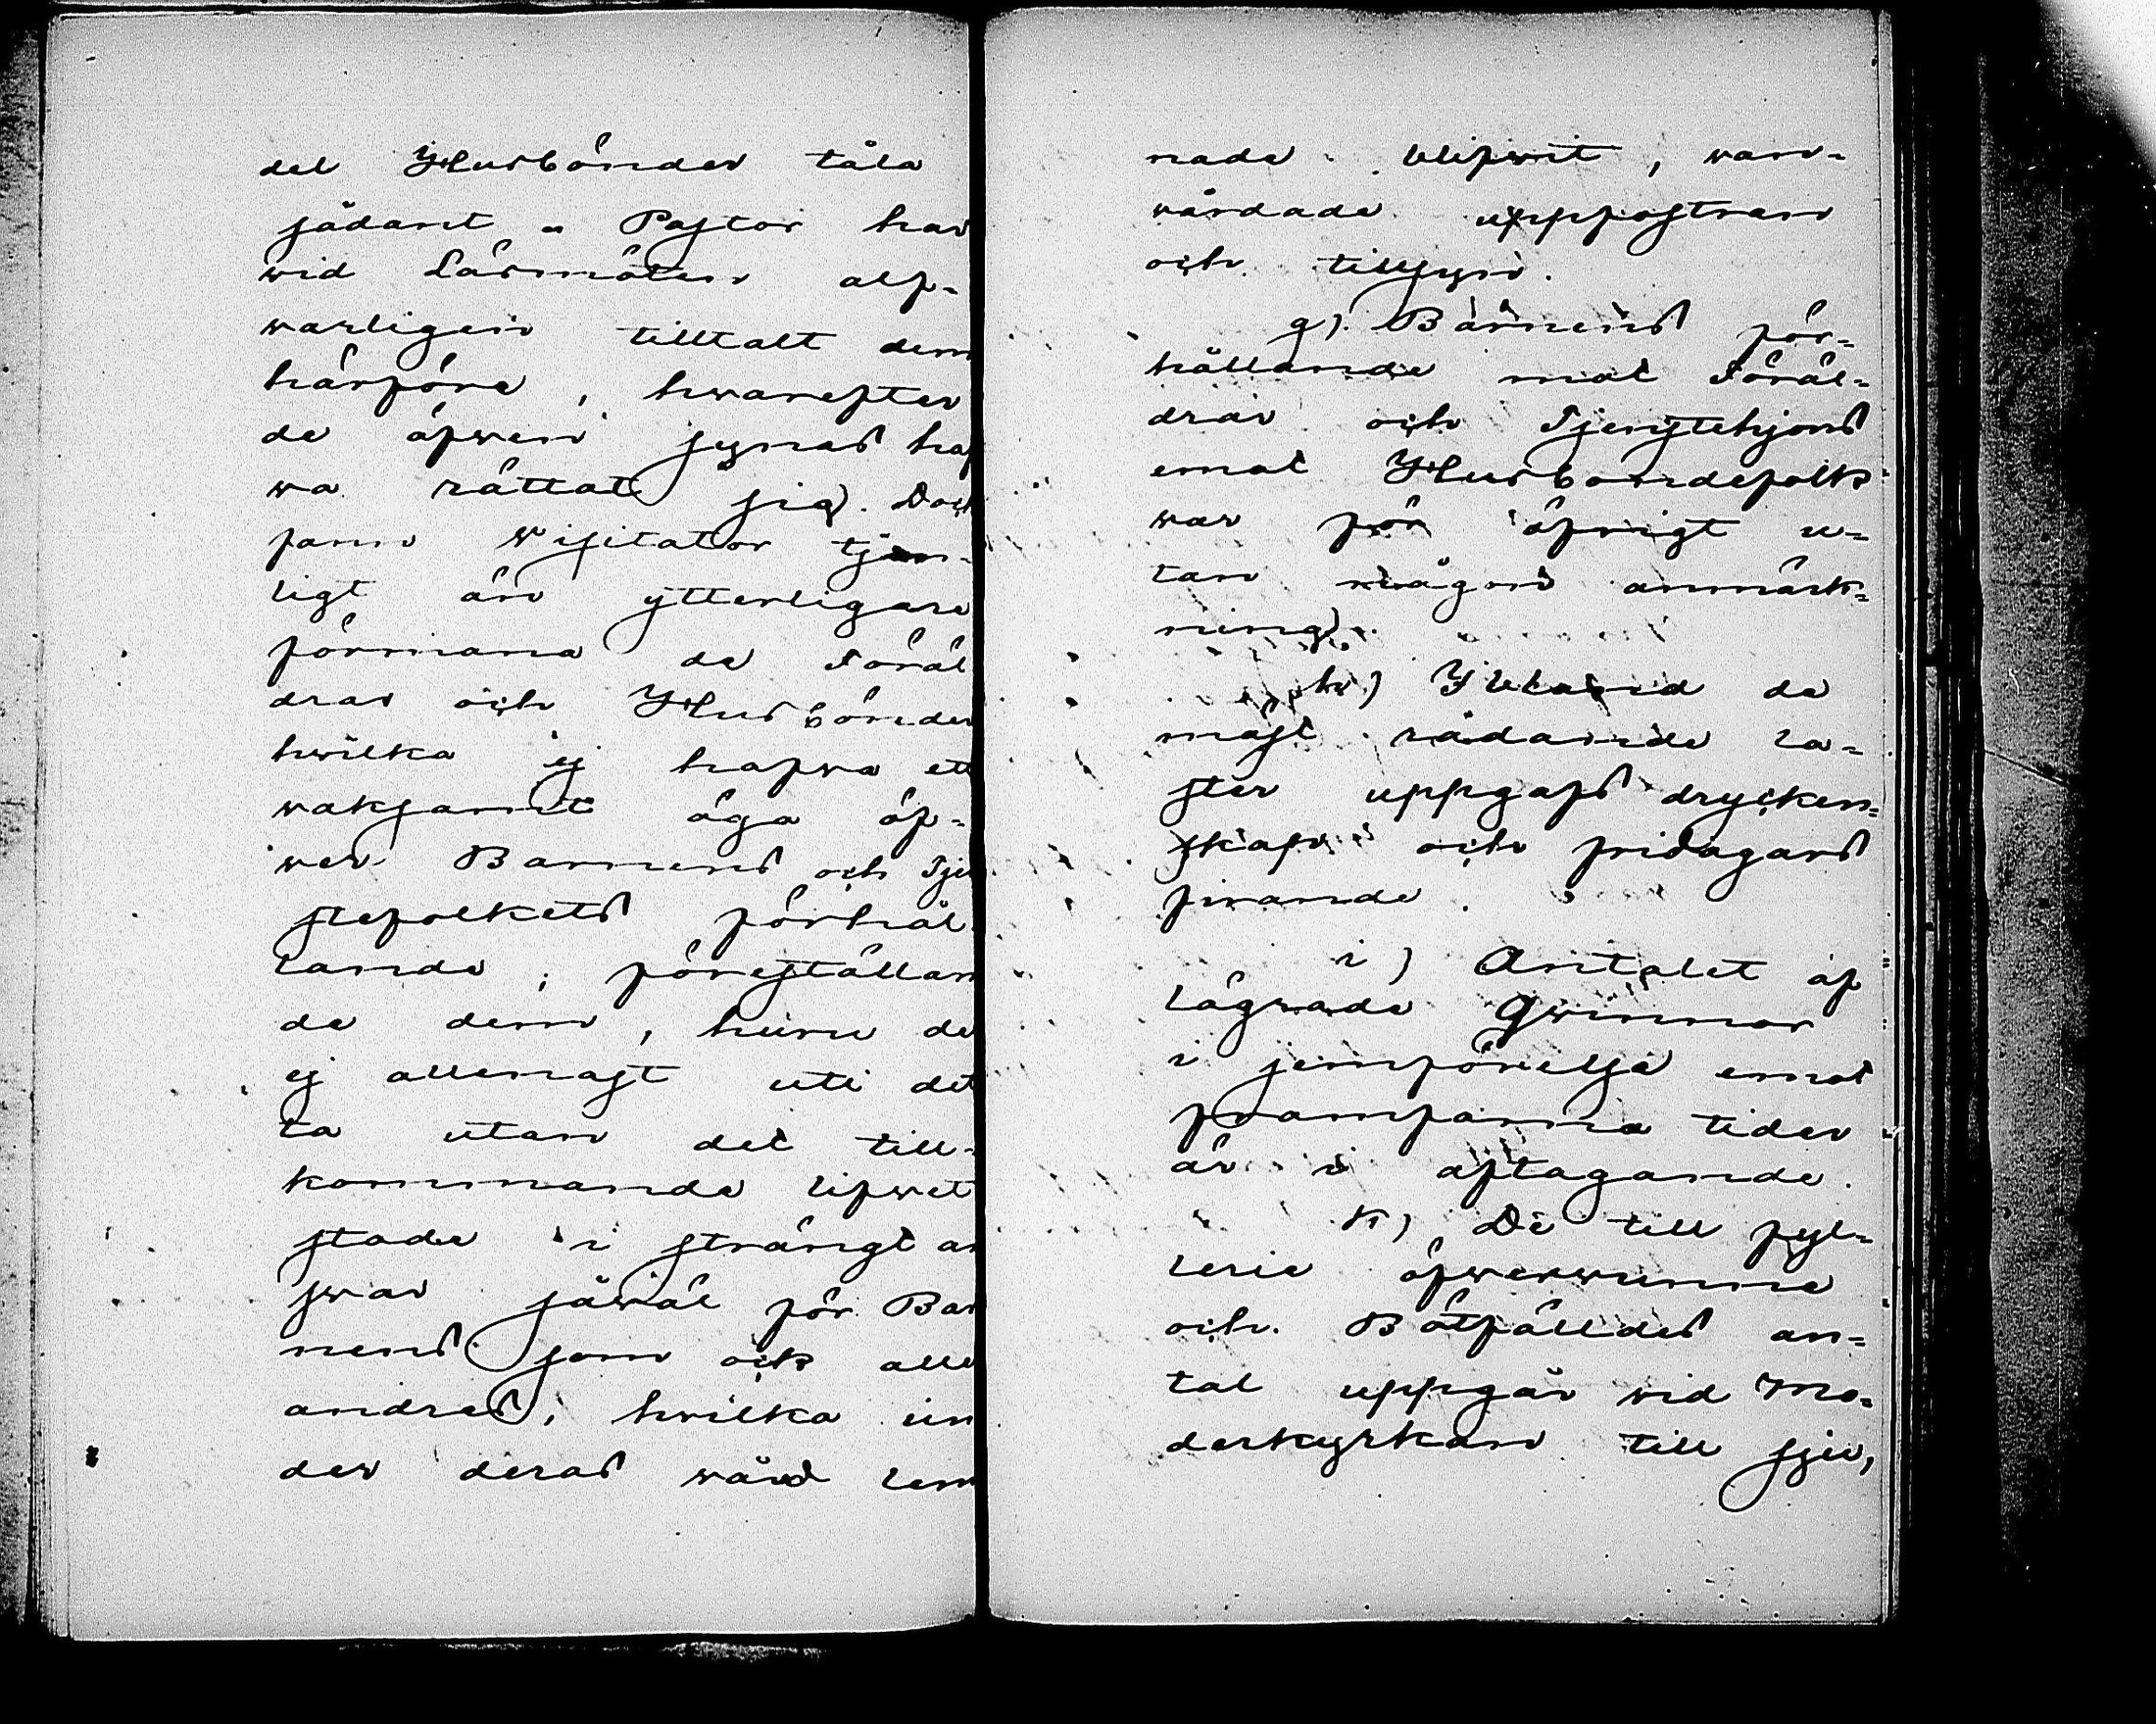 del Husbönder tåla
sådant. Pastor har
wid Läsmöten alf-
warligen tilltalt dem
härföre, hwarefter
de äfwen synas haf
wa rättat sig. Dock
fann Visitator tjen-
ligt än ytterligare
förmana de Föräl
drar och Husbönder
hwilka ej hafwa ett
waksamt öga öf-
wer Barnens och Tje
stefolkets förhål
lande, föreställan
de dem, huru de
ej allenast uti det
ta utan det till-
kommande lifwet
stode i strängt an
swar såwäl för Bar
nens som ock alle
andras, hwilka un
der deras wård lem
nade blifwit, wan-
wårdade uppfostran
och tillsyn.
g). Barnens för-
hållande mot Föräl-
drar och Tjenstehjons
emot Husbondefolk
war för öfrigt u-
tan någon anmärk-
ning.
h) Ibland de
mäst rådande la-
ster uppgafs drycken-
skap och fridagars
firande.
i) Antalet af
lägrade Qwinnor
i jemförelse emot
framfarna tider
är i aftagande.
k) De till fyl-
lerie öfwerwunne
och Botfälldes an-
tal uppgår wid Mo-
derkyrkan till sju,